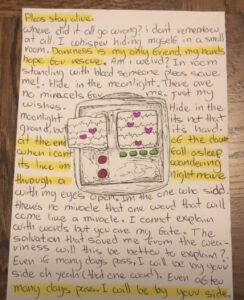 Pleas stay alive.
Where did it all go wrong? i dont remember
at all. I whisper hiding myself in a small
room. Darkness is my only friend, my hands
hope for rescue. Am i weird? In room
standing with blood someone pleas save
me!. Hide in the moonlight. There are
no miracels for me. Just my
wishes. Hide in the
moonlight its not that
ground, its hard.
at the end of the day
when i cant fall asleep
its like im wondering
through a nightmare
with my eyes open. Im the one who said
theres no miracle that one word that will
come like a miracle. I cannot explain
with words but you are my fate. The
salvation that saved me from the wea-
iness will this be better to explain?
Even if many days pass. I will be by your
side oh yeah (that one word). Even after
many days pass. I will be by your side